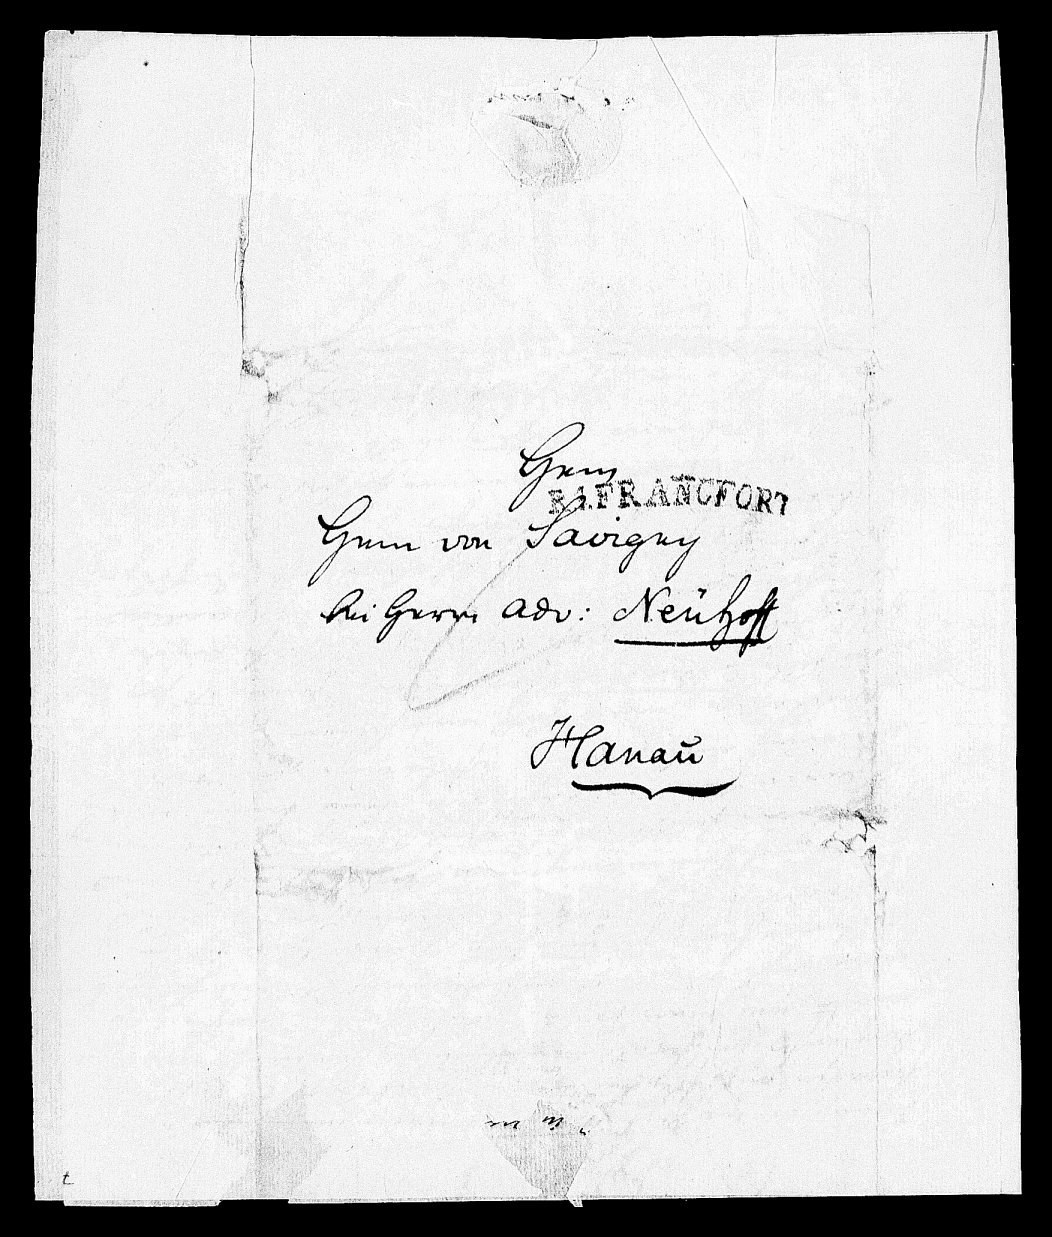 Herrn
R.1.FRANCFORT
Herrn von Savigny
bei Herrn Adv: Neühoff
Hanaŭ